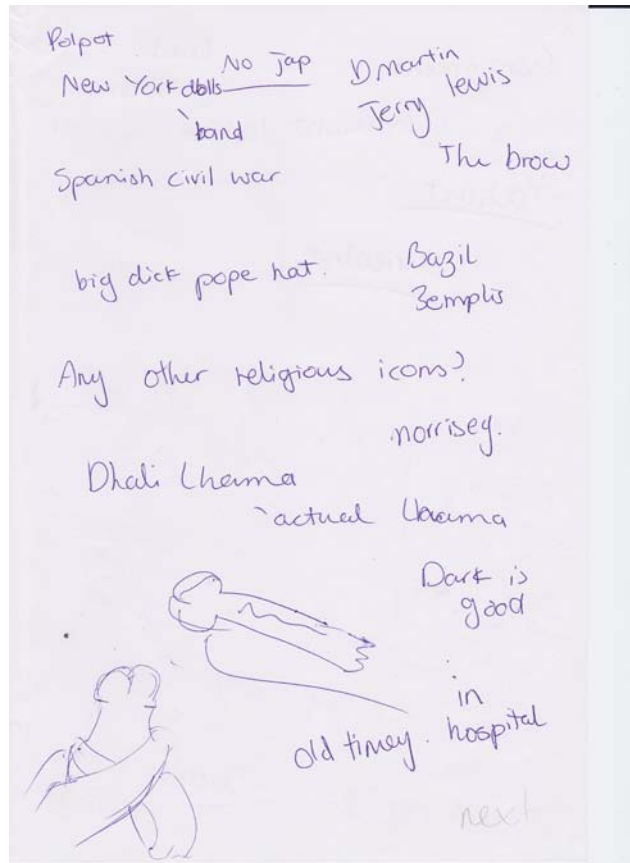 Polpot
No Jap
New York dolls
band
D Martin
Jerry lewis
The brow
Spanish civil war
big dick pope hat.
Bazil
Zemplis
Any other religious icons?
norrisey.
Dhali Lhama
actual
Dark is
good
in
hospital
old timey.
next